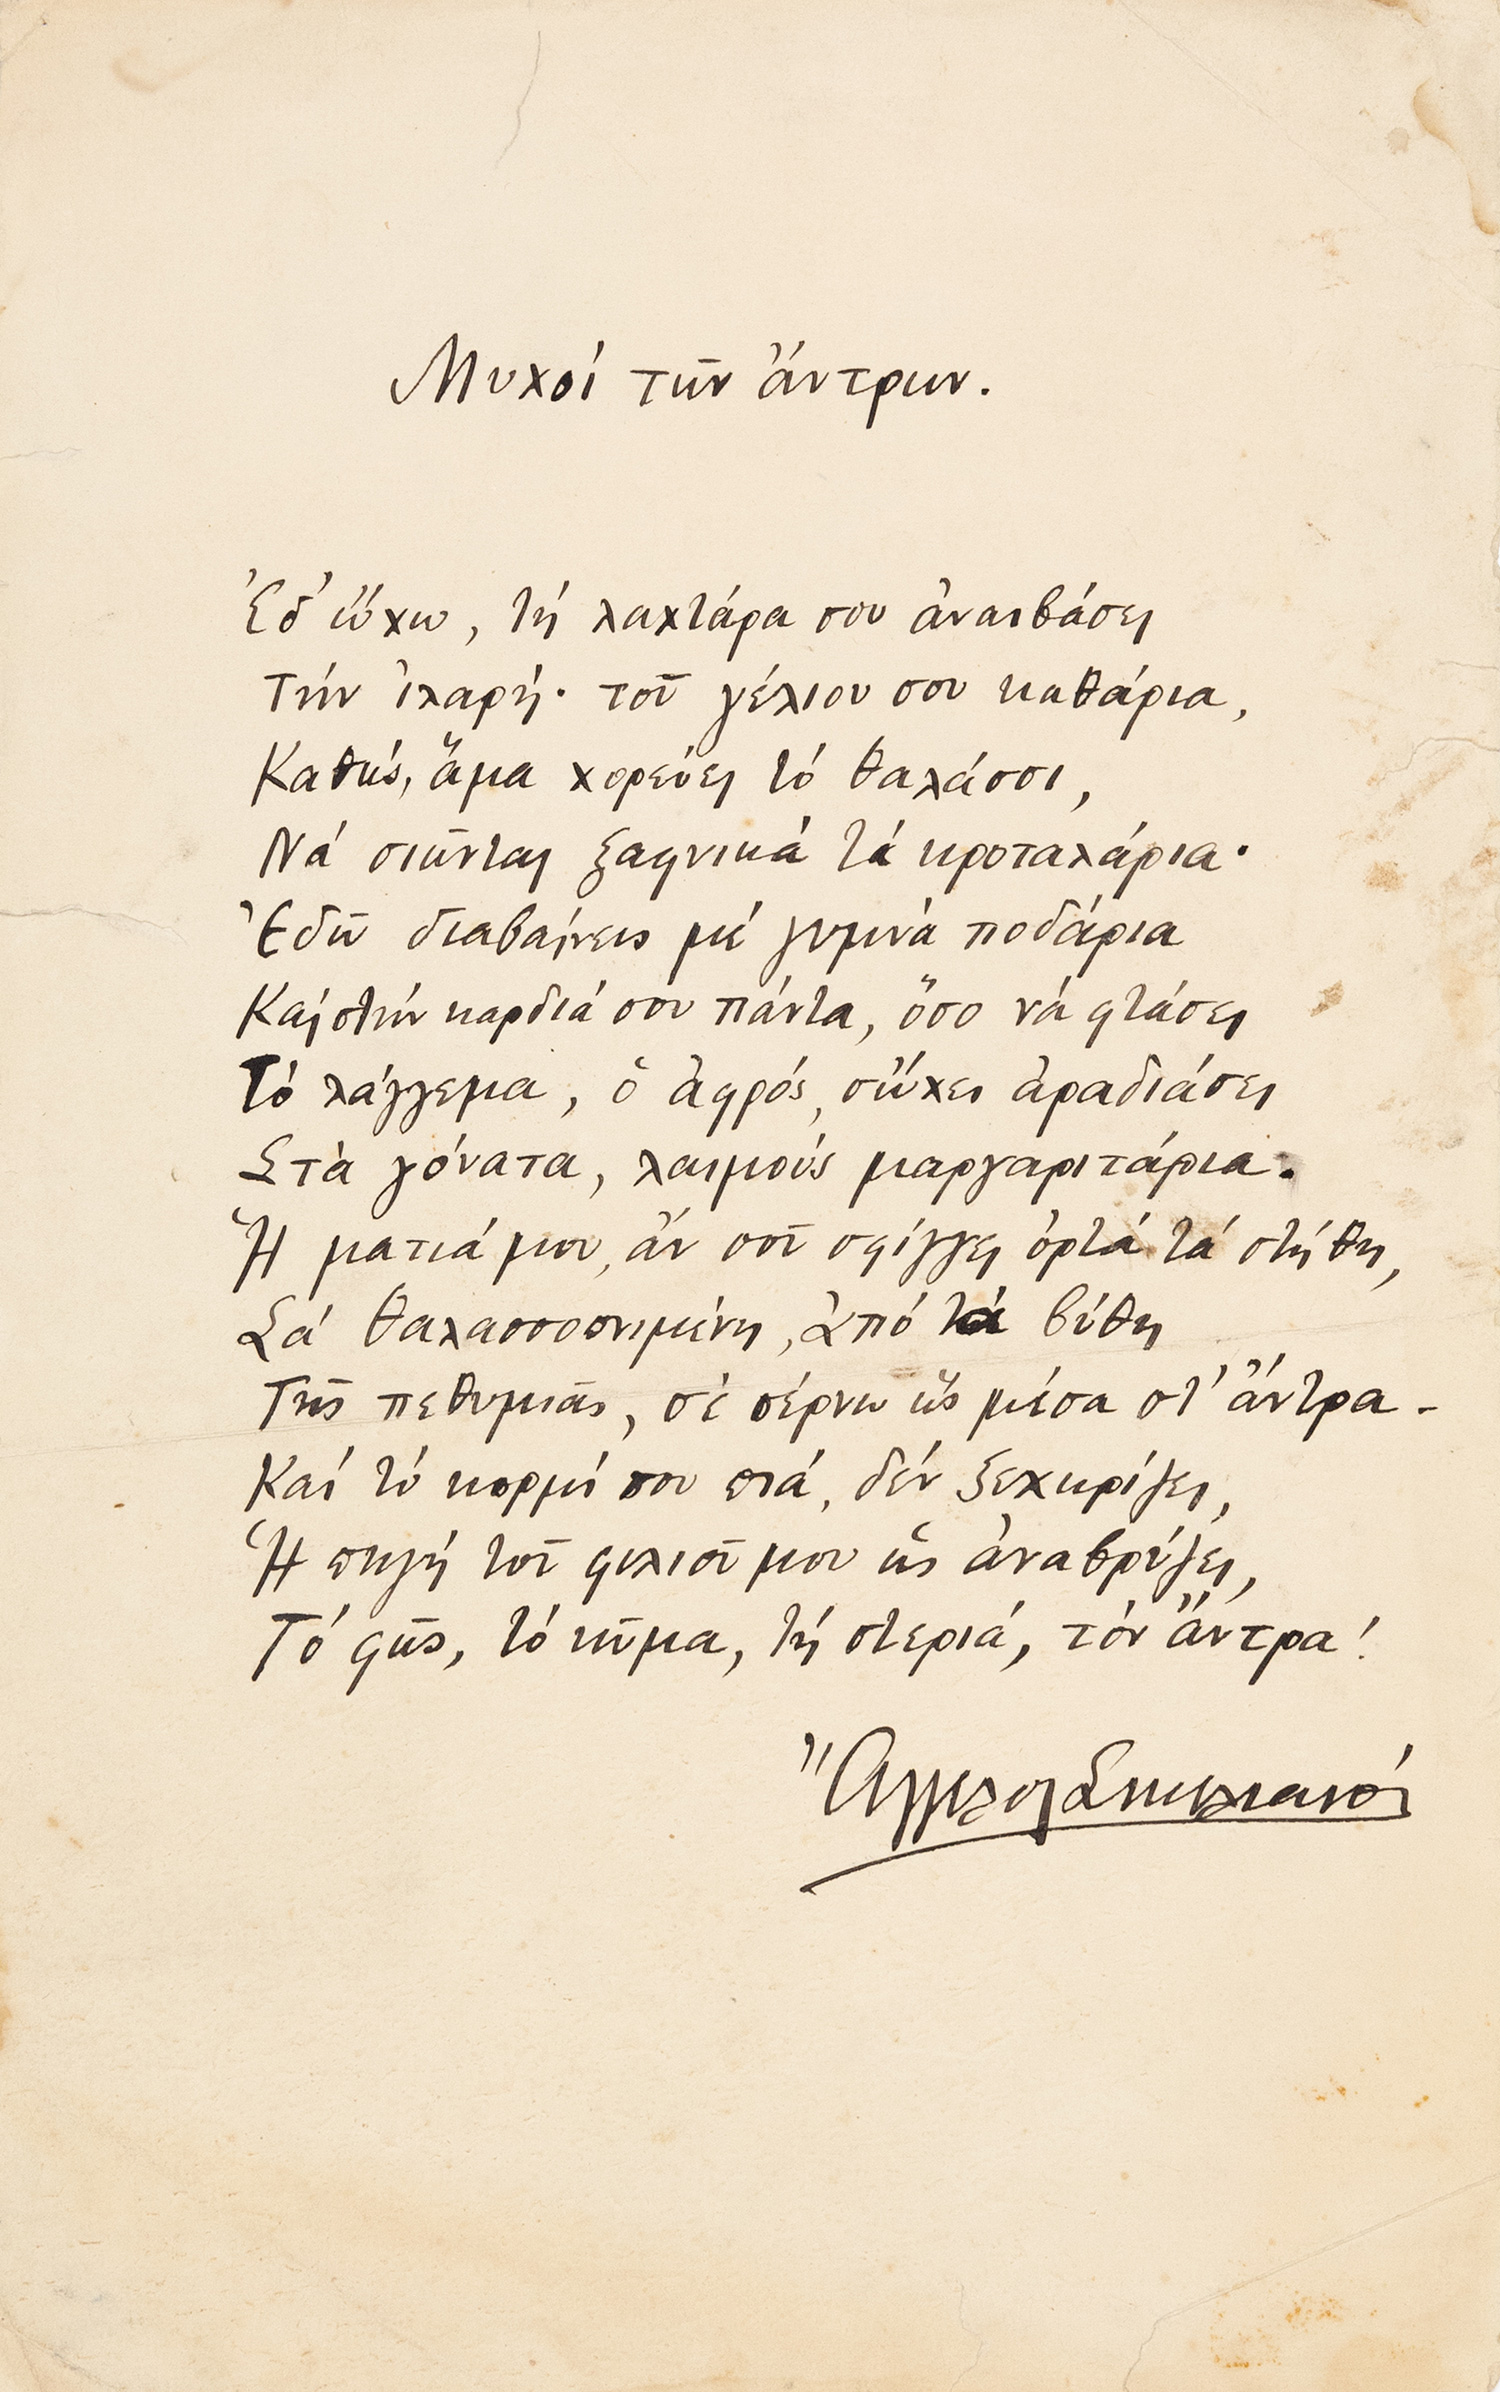 Μυχοί τῶν ἄντρων.
Ἐδ' ὤχω, τή λαχτάρα σου ἀναιβάσει
Τήν ἱλαρή· τοῦ γέλιου σου καθάρια,
Καθώς, ἅμα χορεύει τό θαλάσσι,
Νά σιῶνται ξαφνικά τά κροταλάρια·
Ἐδῶ διαβαίνεις μέ γυμνά ποδάρια
Καί στήν καρδιά σου πάντα, ὅσο νά φτάσει
Τό λάγγεμα, ὁ ἀφρός, σὤχει ἀραδιάσει
Στά γόνατα, λαιμούς μαργαριτάρια.
Ἡ ματιά μου, ἄν σοῦ σφίγγει ὀρτά τά στήθη,
Σά θαλασσοσυρμένη, ἀπό τά βύθη
Τῆς πεθυμιᾶς, σέ σέρνω ὥς μέσα στ' ἄντρα -
Καί τό κορμί σου πιά, δέν ξεχωρίζει,
Ἡ πηγή τοῦ φιλιοῦ μου ὥς ἀναβρύζει,
Τό φῶς, τό κῦμα, τή στεριά, τόν ἄντρα!
Ἄγγελος Σικελιανός